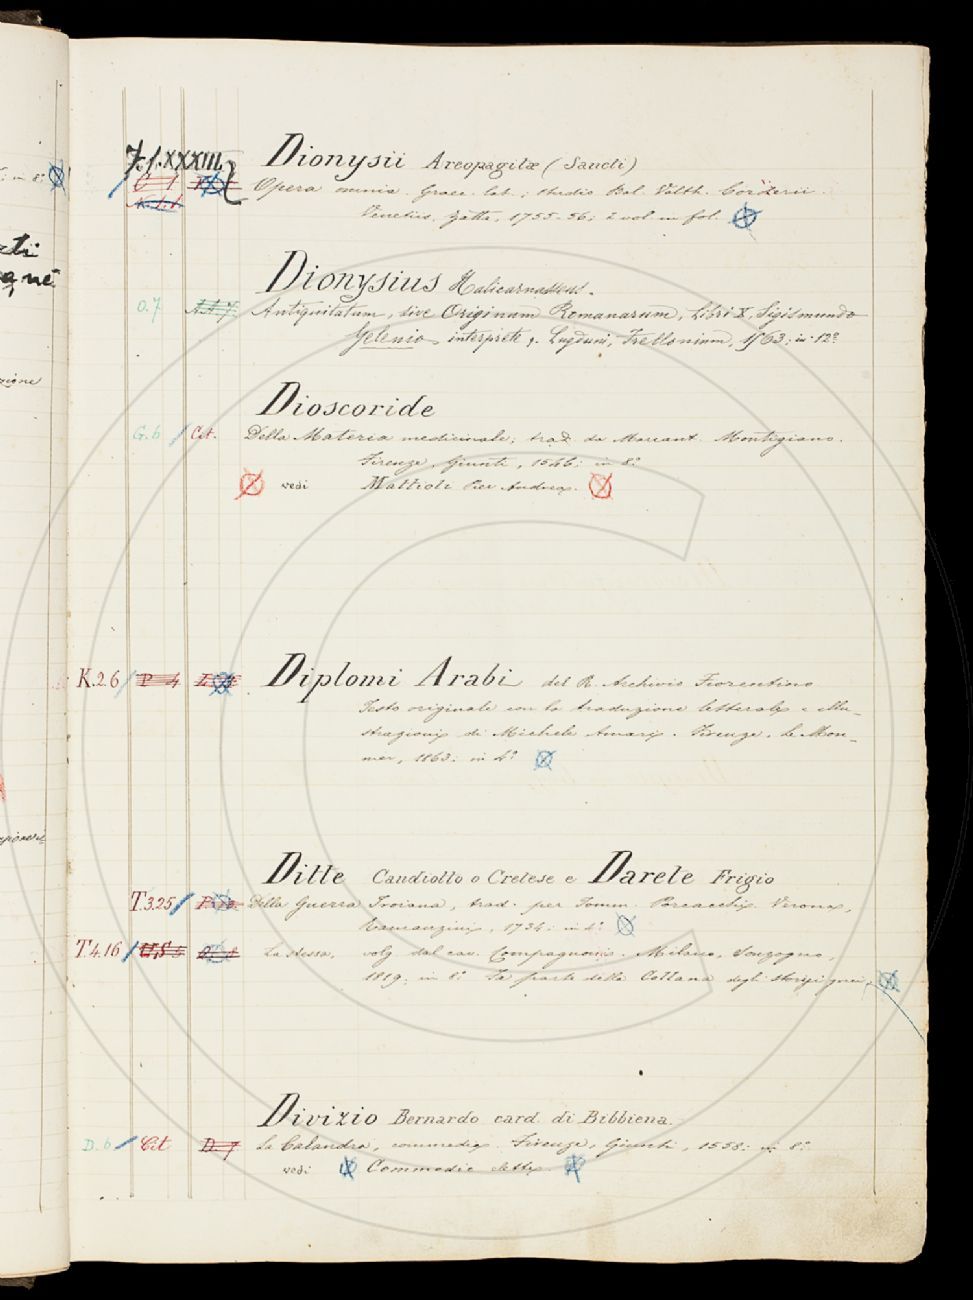 7.1.XXXIII.
Dionysii Areopagitæ (Sancti)
Opera omnia. Graec. lat.; studio Bal. Corderii.
Venetiis, Zatta, 1755-56; 2 vol. in fol.
Dionysius Halicarnasseus.
O.7 A.A.7. Antiquitatum, sive Originum Romanarum, Libri X, Sigismundo
Gelenio interprete. Lugduni, 1563; in 12°
Dioscoride
G.6 / Cit. Della Materia medicinale; trad. da Marcant. Montigiano.
Firenze, Giunti, 1546: in 8°
vedi Mattioli Pier Andrea.
K.2.6 / P 4 Diplomi Arabi del R. Archivio Fiorentino
Testo originale con la traduzione letterale e illu-
strazioni di Michele Amari. Firenze, Le Mon-
nier, 1863: in 4°
Ditte Candiotto o Cretese e Darete Frigio
T.3.25 / Della Guerra Troiana, trad. per Tomm. Porcacchi. Verona,
Ramanzini, 1734: in 4°
T.4.16 / La stessa, volg. dal cav. Compagnoni. Milano, Sonzogno,
1819: in 8° Fa parte della Collana degli storici greci.
Divizio Bernardo card. di Bibbiena.
D.6 / Cit D.7 La Calandra, commedia. Firenze, Giunti, 1558: in 8°
vedi Commedie elette.